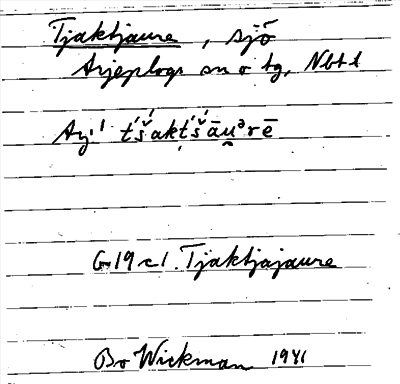 Tjaktjaure, sjö
Arjeplogs sn o tg, Nbtl
Arj.! t́š́akt́š́āu̯ᵊrē
G19 c1. Tjaktjajaure
Bo Wickman 1941